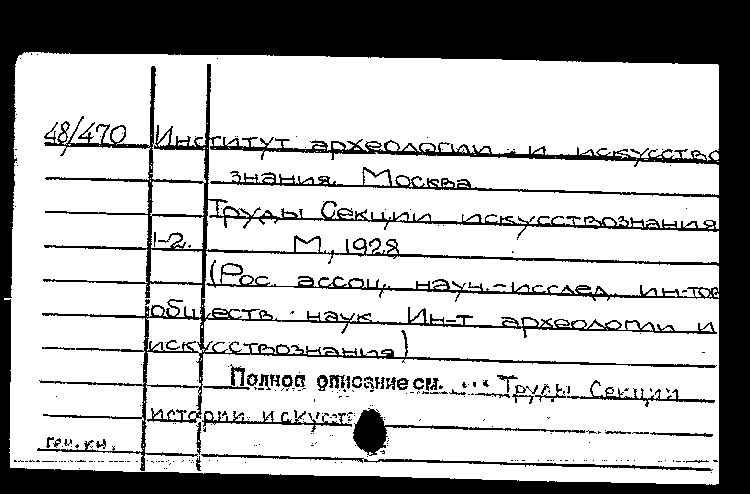 48/470 Институт археологии и искусство
знания. Москва
Труды Секции искусствознания
1-2. М., 1928
(Рос. ассоц. науч.-исслед. ин-тов
обществ. наук. Ин-т археологии и
искусствознания)
Полное описание см. ... Труды Секции
истории искусств
ген. кн.